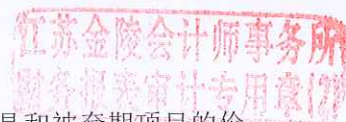 江苏金陵会计师事务所
财务报表审计专用章(1)
具和被套期项目的价